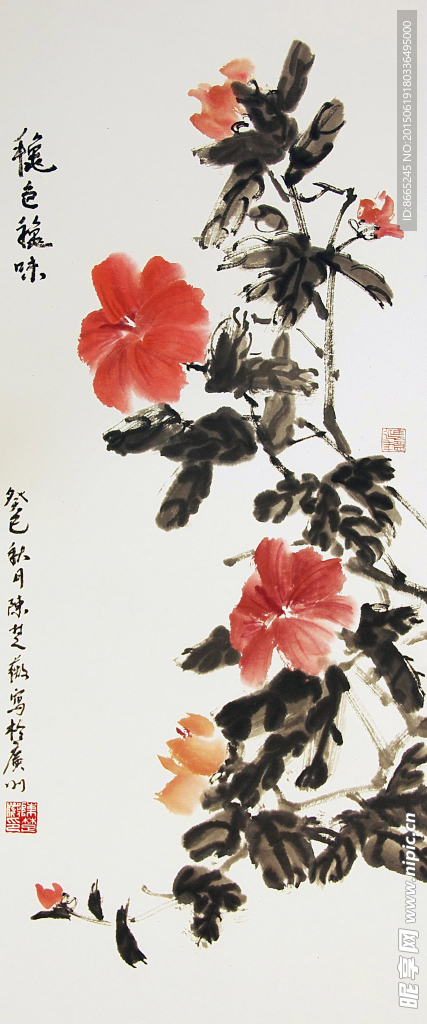 穠色穠味
癸巳秋月陳楚薇寫於廣州
ID:8665245 NO:20150619180336495000
昵享网 www.nipic.cn